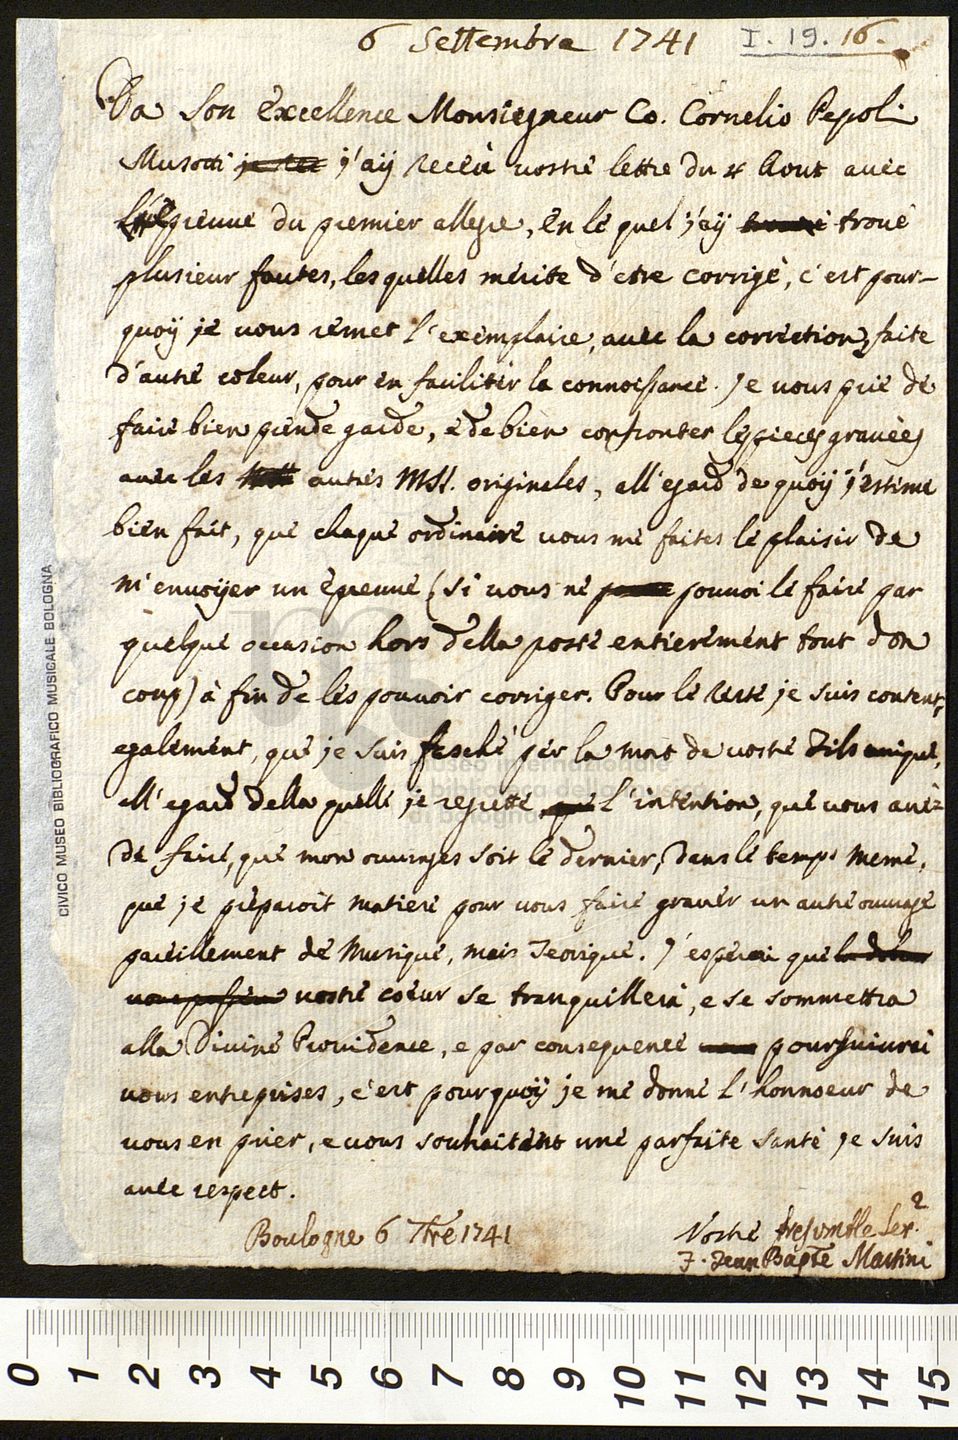 6 Settembre 1741 I. 19. 16.
Da Son Excellence Monsiegneur Co. Cornelio Pepoli
Musotti je rec j'aÿ receù vostre lettre du 4 Aout avec
l'epreuve du premier allegre, en le quel j'aÿ trouvé troué
plusieur fautes, les quelles mérite d'etre corrigé, c'est pour-
quoÿ je vous remet l'exemplaire, avec la correction, faite
d'autre coleur, pour en faciliter la connoissance. Je vous prie de
faire bien prende garde, e de bien confronter les pieces gravées
avec les autres MSS. originales, all'egard de quoÿ j'estime
bien fait, que chaque ordinaire vous me faites le plaisir de
m'envoÿer un épreuve (si vous ne pouvoi le faire par
quelque occasion hors della poste entierement tout d'on
coup) à fin de les pouvoir corriger. Pour le reste je suis content,
egalement, que je suis fesché per la mort de vostre Fils unique,
all'egard della quelle je regrette que l'intention, que vous avéz
de faire, que mon ouvrages soit le dernier, dans le temps meme,
que je preparoit matiere pour vous faire graver un autre ouvrage
pareillement de Musique, mais Teorique. J'espererai que la doleur
vostre coeur se tranquillerà, e se sommettra
alla Divine Providence, e par consequence poursuivrai
vous entreprises, c'est pourquoÿ je me donne l'honnoeur de
vous en prier, e vous souhaitent une parfaite santé je suis
avec respect.
Boulogne 6 7bre 1741 Vostre tresumble Ser.
F. Jean Bapte Martini
CIVICO MUSEO BIBLIOGRAFICO MUSICALE BOLOGNA
museo internazionale
e biblioteca della musica
di bologna
0 1 2 3 4 5 6 7 8 9 10 11 12 13 14 15